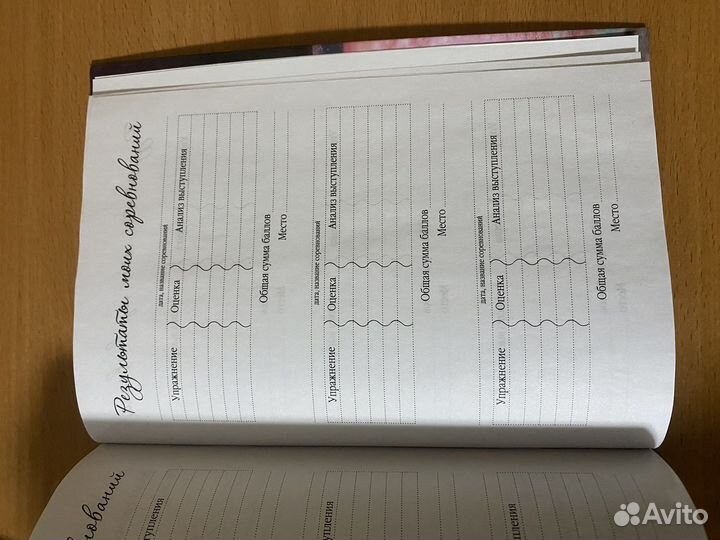 Результаты моих соревнований
дата, название соревнований
Упражнение Оценка Анализ выступления
Общая сумма баллов
Место
дата, название соревнований
Упражнение Оценка Анализ выступления
Общая сумма баллов
Место
дата, название соревнований
Упражнение Оценка Анализ выступления
Общая сумма баллов
Место
нований
тупления
тупления
упления
Avito